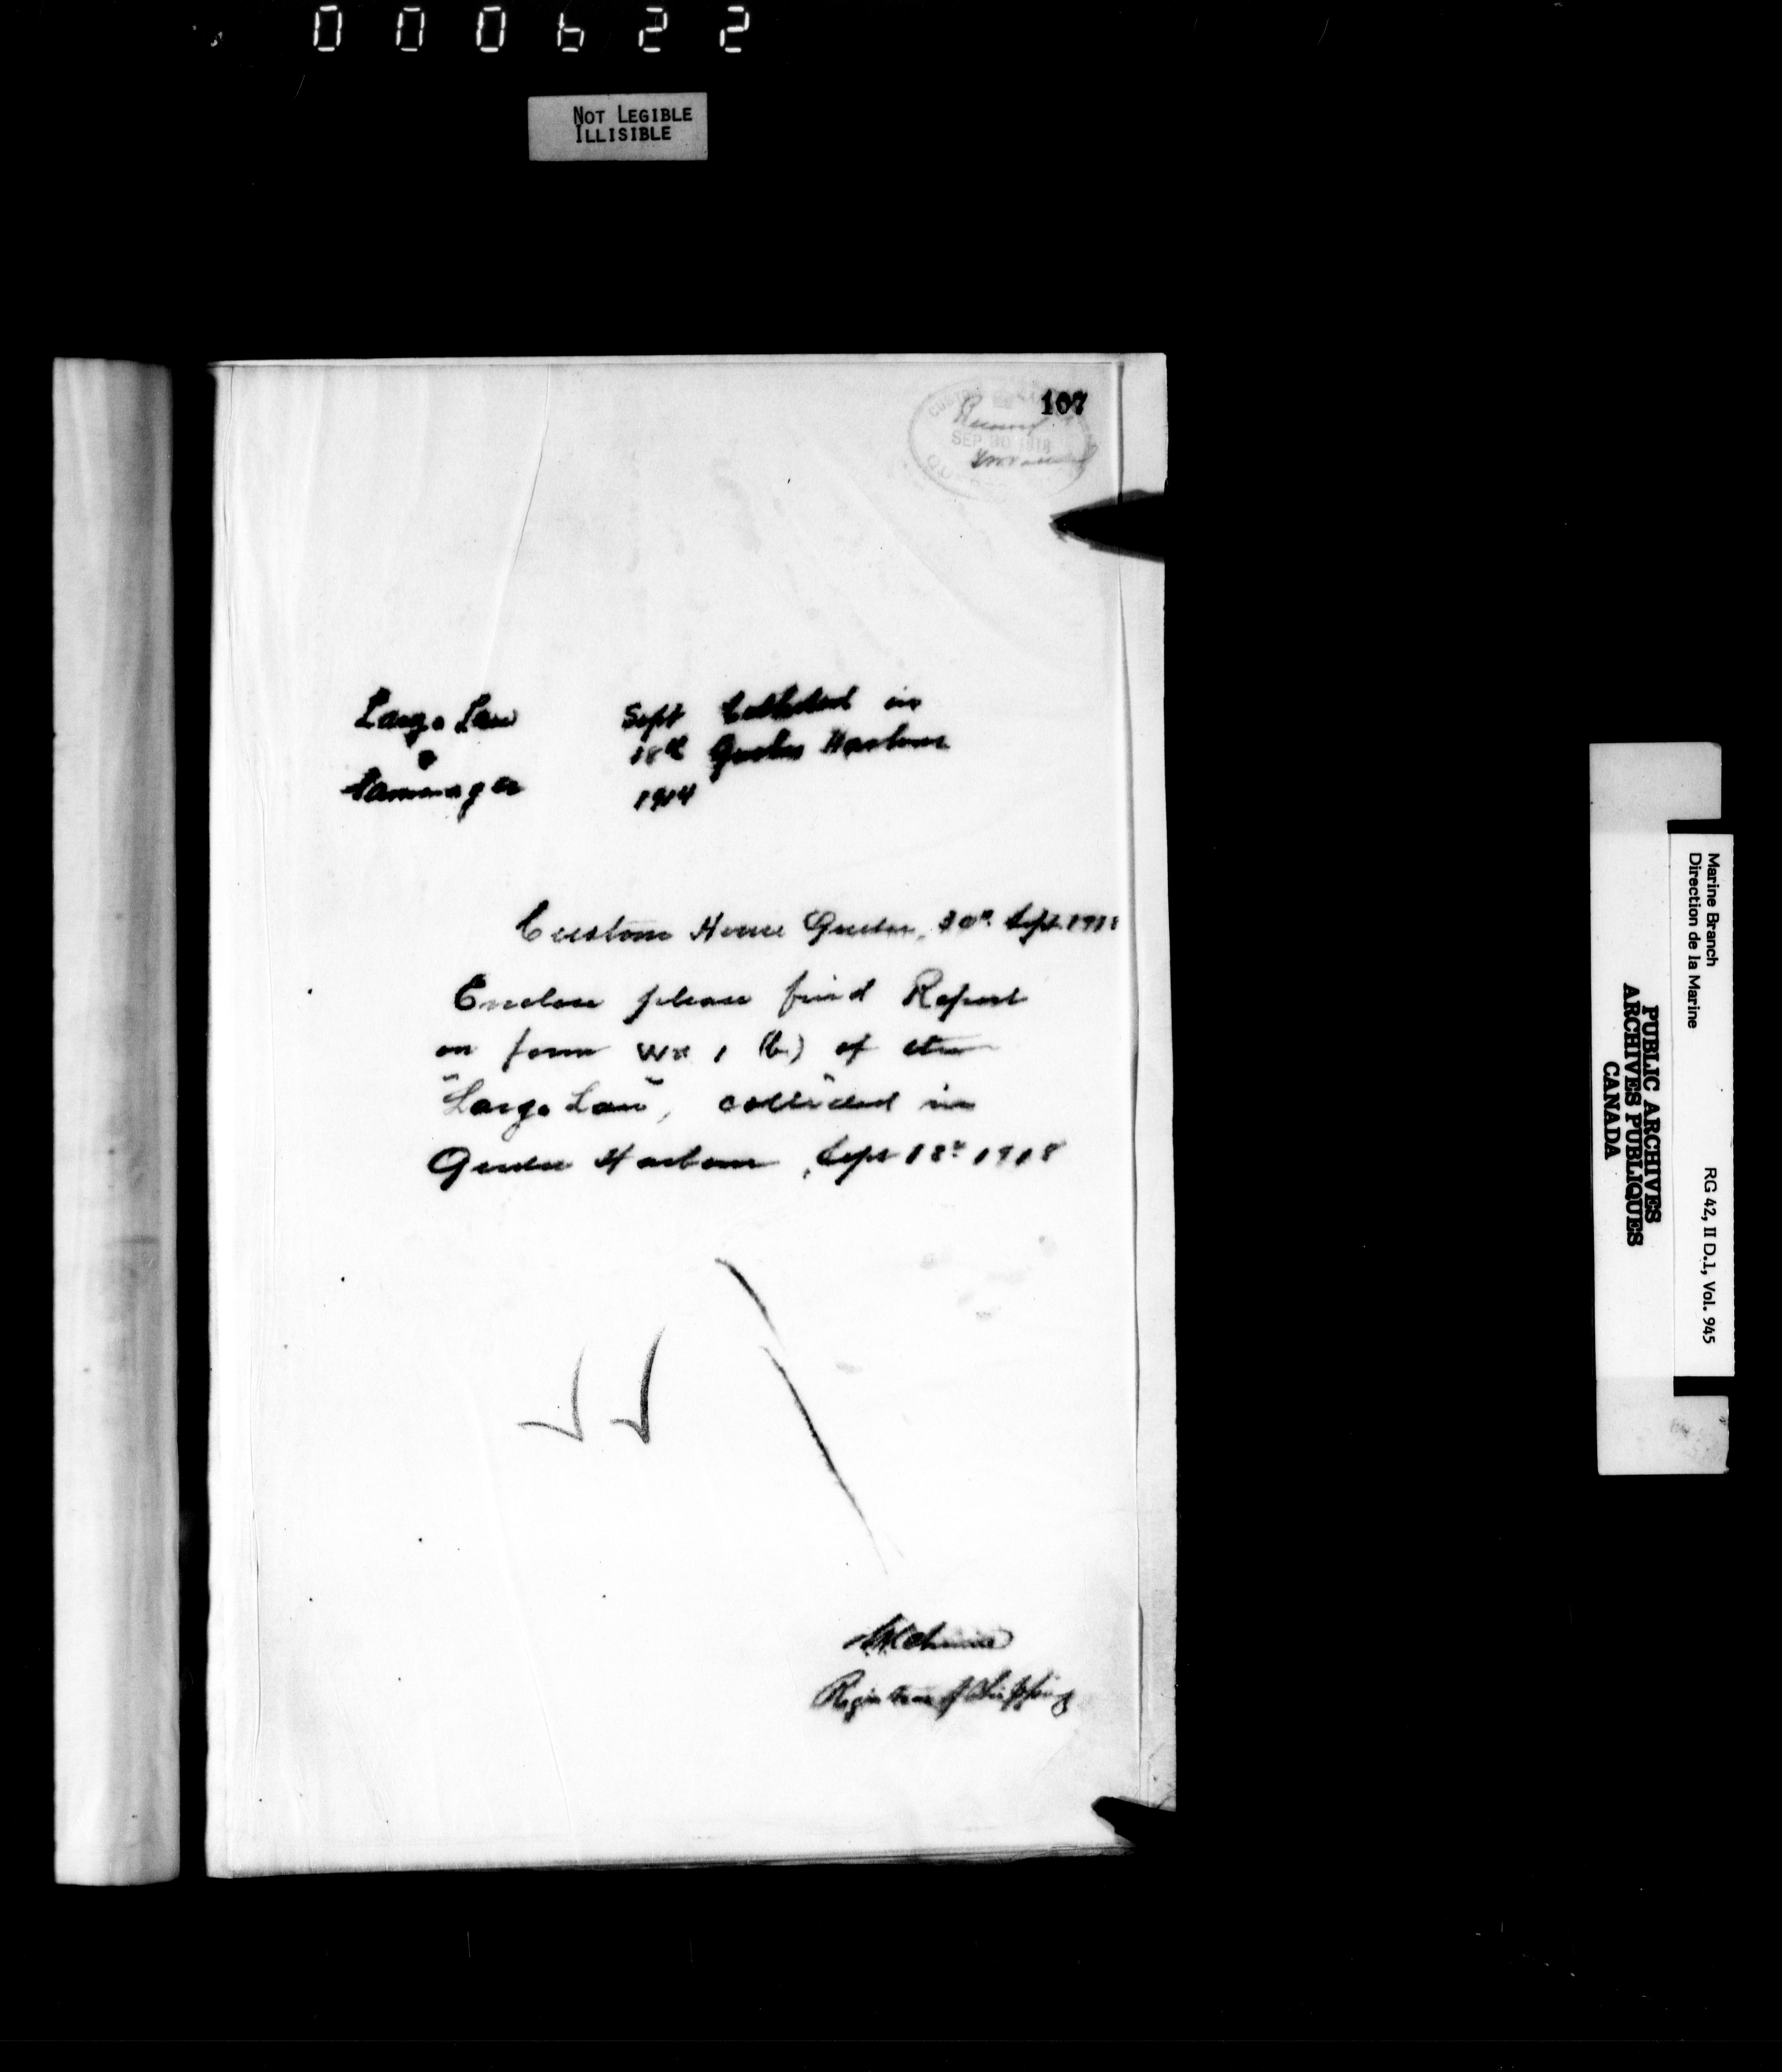 000622
NOT LEGIBLE
ILLISIBLE
107
SEP 30 1918
Largo Law Sept Collided in
& 18th Quebec Harbour
1914
Custom House Quebec, 30th Sept. 1918
Enclose please find Report
on form Wr 1 (b.) of str
"Largo Law", collided in
Quebec Harbour, Sept 18th 1918
Registrar of Shipping
Marine Branch RG 42, II D.1, Vol. 945
Direction de la Marine
PUBLIC ARCHIVES
ARCHIVES PUBLIQUES
CANADA